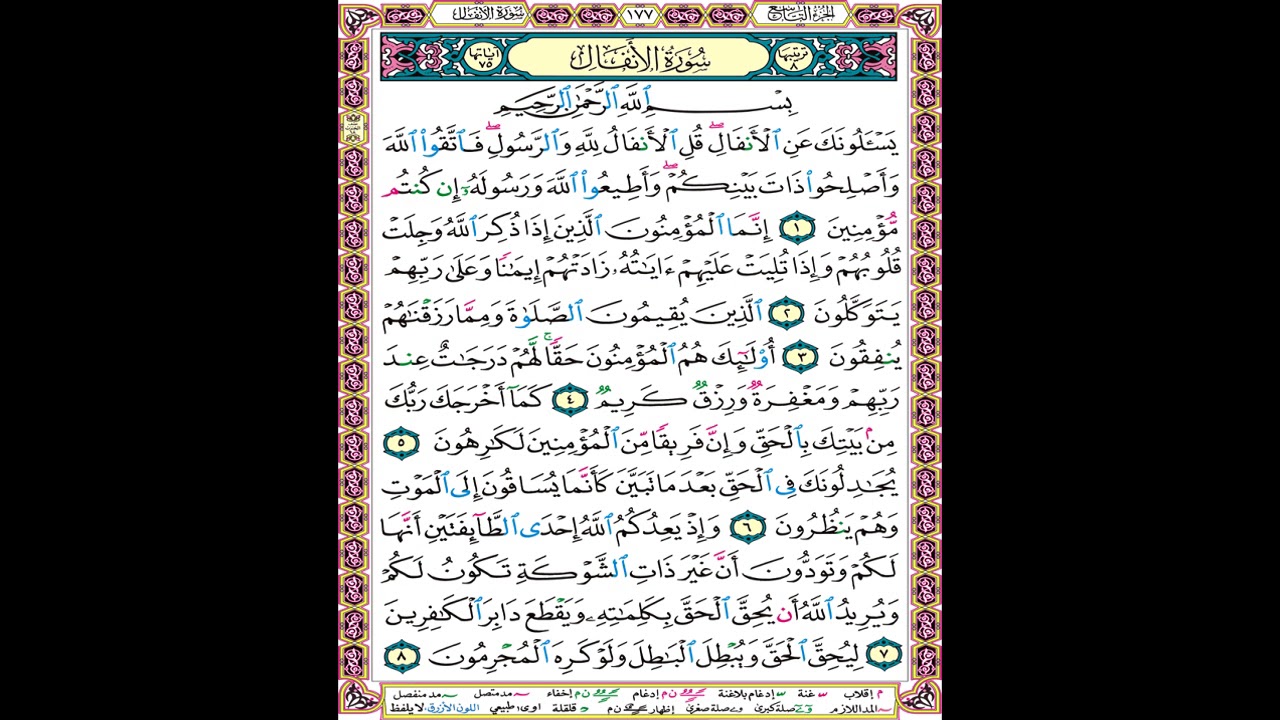 الجزء التاسع
١٧٧
سورة الأنفال
ترتيبها ٨
سُورَةُ الأَنفَالِ
آياتها ٧٥
بِسْمِ ٱللَّهِ ٱلرَّحْمَٰنِ ٱلرَّحِيمِ
يَسْـَٔلُونَكَ عَنِ ٱلْأَنفَالِ ۖ قُلِ ٱلْأَنفَالُ لِلَّهِ وَٱلرَّسُولِ ۖ فَٱتَّقُوا۟ ٱللَّهَ
وَأَصْلِحُوا۟ ذَاتَ بَيْنِكُمْ ۖ وَأَطِيعُوا۟ ٱللَّهَ وَرَسُولَهُۥٓ إِن كُنتُم
مُّؤْمِنِينَ ١ إِنَّمَا ٱلْمُؤْمِنُونَ ٱلَّذِينَ إِذَا ذُكِرَ ٱللَّهُ وَجِلَتْ
قُلُوبُهُمْ وَإِذَا تُلِيَتْ عَلَيْهِمْ ءَايَٰتُهُۥ زَادَتْهُمْ إِيمَٰنًا وَعَلَىٰ رَبِّهِمْ
يَتَوَكَّلُونَ ٢ ٱلَّذِينَ يُقِيمُونَ ٱلصَّلَوٰةَ وَمِمَّا رَزَقْنَٰهُمْ
يُنفِقُونَ ٣ أُو۟لَٰٓئِكَ هُمُ ٱلْمُؤْمِنُونَ حَقًّا ۚ لَّهُمْ دَرَجَٰتٌ عِندَ
رَبِّهِمْ وَمَغْفِرَةٌ وَرِزْقٌ كَرِيمٌ ٤ كَمَآ أَخْرَجَكَ رَبُّكَ
مِنۢ بَيْتِكَ بِٱلْحَقِّ وَإِنَّ فَرِيقًا مِّنَ ٱلْمُؤْمِنِينَ لَكَٰرِهُونَ ٥
يُجَٰدِلُونَكَ فِى ٱلْحَقِّ بَعْدَ مَا تَبَيَّنَ كَأَنَّمَا يُسَاقُونَ إِلَى ٱلْمَوْتِ
وَهُمْ يَنظُرُونَ ٦ وَإِذْ يَعِدُكُمُ ٱللَّهُ إِحْدَى ٱلطَّآئِفَتَيْنِ أَنَّهَا
لَكُمْ وَتَوَدُّونَ أَنَّ غَيْرَ ذَاتِ ٱلشَّوْكَةِ تَكُونُ لَكُمْ
وَيُرِيدُ ٱللَّهُ أَن يُحِقَّ ٱلْحَقَّ بِكَلِمَٰتِهِۦ وَيَقْطَعَ دَابِرَ ٱلْكَٰفِرِينَ
٧ لِيُحِقَّ ٱلْحَقَّ وَيُبْطِلَ ٱلْبَٰطِلَ وَلَوْ كَرِهَ ٱلْمُجْرِمُونَ ٨
م إقلاب غنة إدغام بلاغنة ن م إدغام ن م إخفاء مد متصل مد منفصل
المد اللازم صلة كبرى صلة صغرى إظهار ن م قلقلة اوى طبيعي اللون الأزرق لا يلفظ